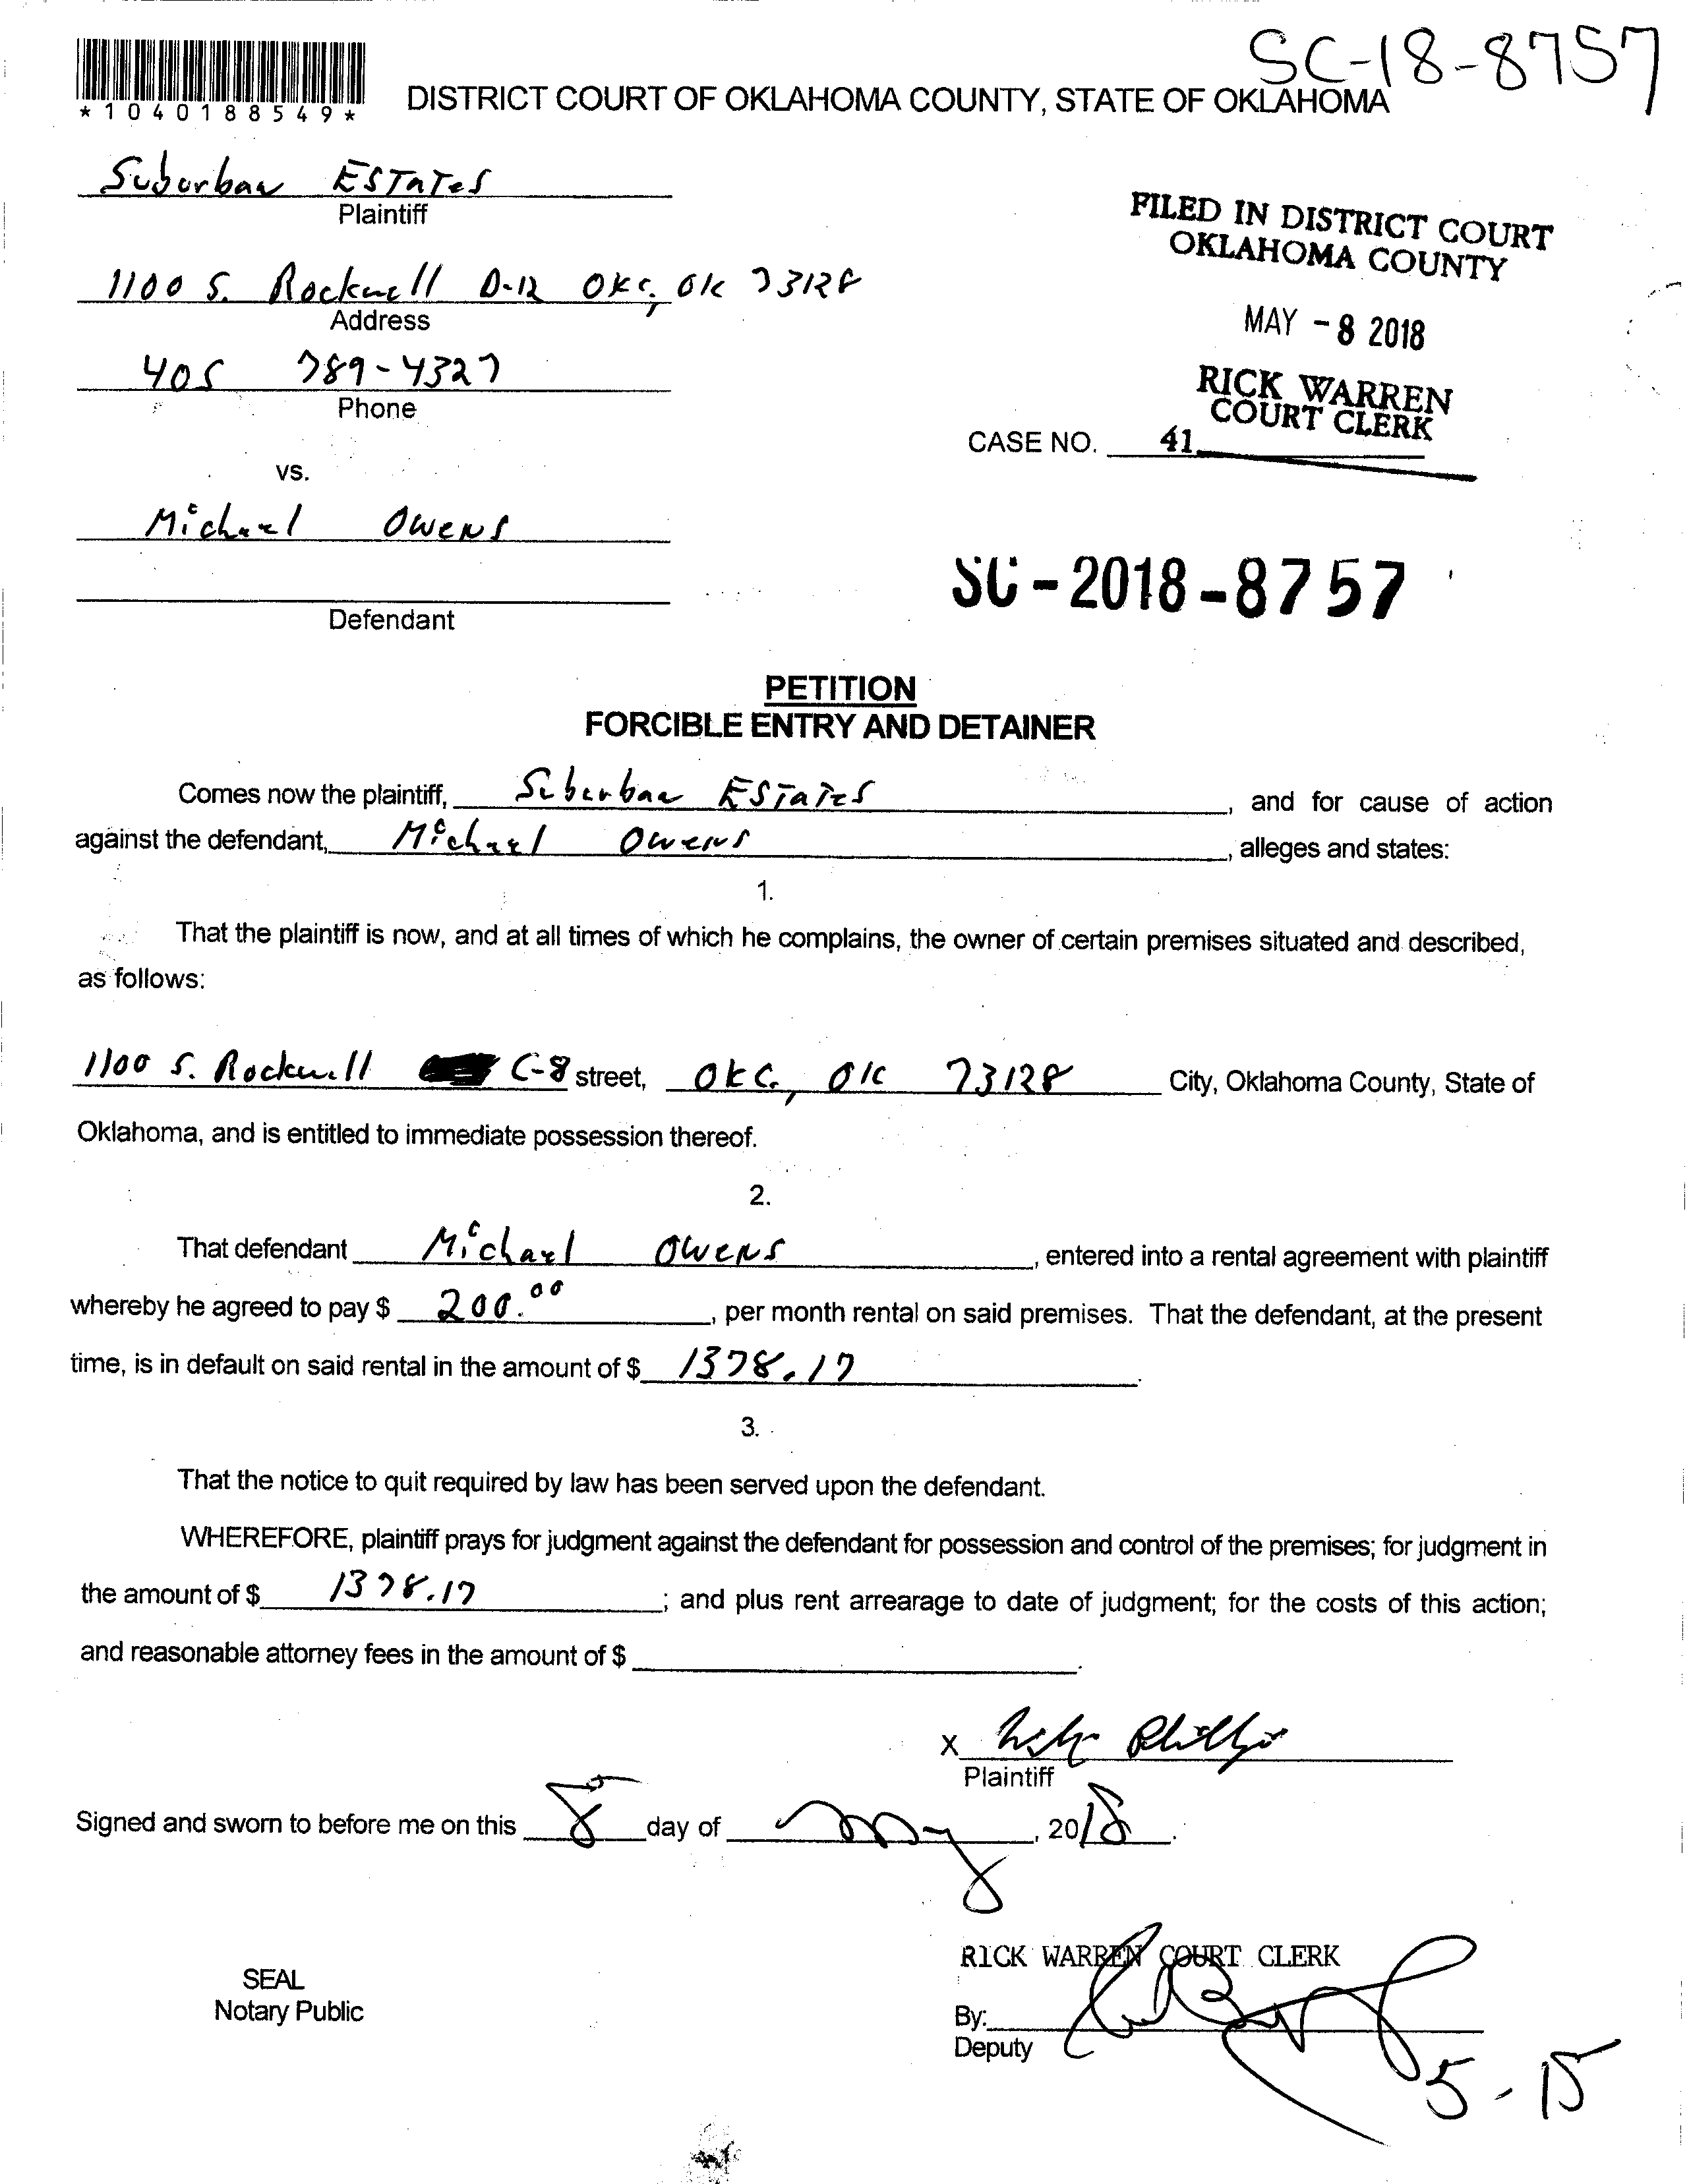 SC-18-8757
*1040188549*
DISTRICT COURT OF OKLAHOMA COUNTY, STATE OF OKLAHOMA
Suburban ESTaTes
Plaintiff
FILED IN DISTRICT COURT
OKLAHOMA COUNTY
1100 S. Rockwell D-12 OKC, OK 73128
Address
MAY - 8 2018
405 789-4327
Phone
RICK WARREN
COURT CLERK
CASE NO. 41
vs.
Michael Owens
SC-2018-8757
Defendant
PETITION
FORCIBLE ENTRY AND DETAINER
Comes now the plaintiff, Suburban ESTaTes, and for cause of action
against the defendant, Michael Owens, alleges and states:
1.
That the plaintiff is now, and at all times of which he complains, the owner of certain premises situated and described,
as follows:
1100 S. Rockwell C-8 street, OKC, OK 73128 City, Oklahoma County, State of
Oklahoma, and is entitled to immediate possession thereof.
2.
That defendant Michael Owens, entered into a rental agreement with plaintiff
whereby he agreed to pay $ 200.00, per month rental on said premises. That the defendant, at the present
time, is in default on said rental in the amount of $ 1378.17.
3.
That the notice to quit required by law has been served upon the defendant.
WHEREFORE, plaintiff prays for judgment against the defendant for possession and control of the premises; for judgment in
the amount of $ 1378.17; and plus rent arrearage to date of judgment; for the costs of this action;
and reasonable attorney fees in the amount of $ .
X
Plaintiff
Signed and sworn to before me on this 8 day of May, 2018.
RICK WARREN COURT CLERK
SEAL
Notary Public
By:
Deputy
5-15